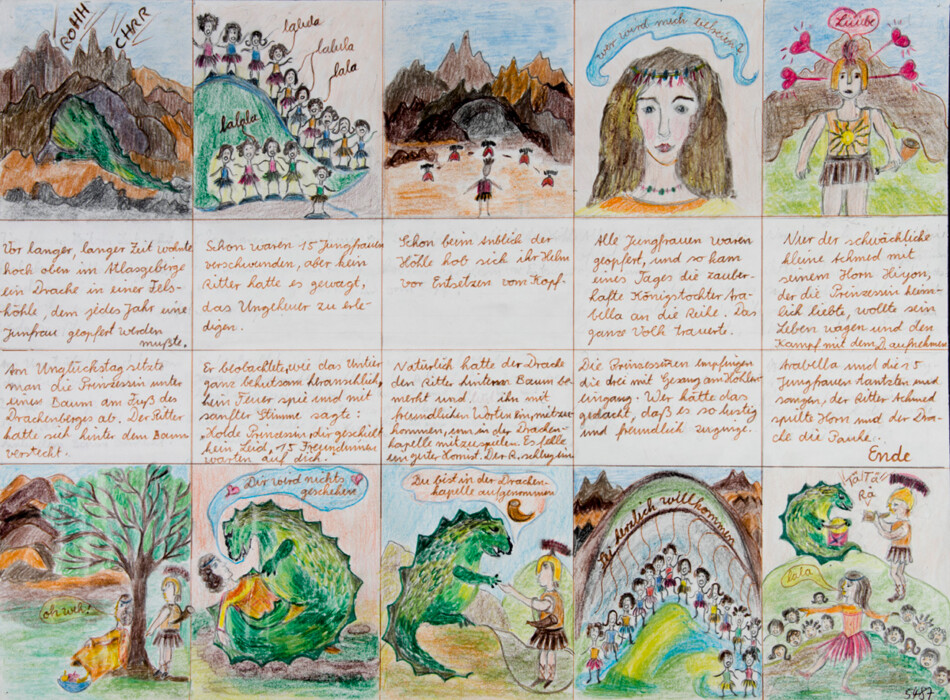 ROHH
CHRR
lalula
lalula
lala
lalala
wer wird mich befreien?
Liiiebe
Vor langer, langer Zeit wohnte
hoch oben im Atlasgebirge
ein Drache in einer Fels-
höhle, dem jedes Jahr eine
Jungfrau geopfert werden
mußte.
Schon waren 15 Jungfrauen
verschwunden, aber kein
Ritter hatte es gewagt,
das Ungeheuer zu erle-
digen.
Schon beim Anblick der
Höhle hob sich ihr Helm
vor Entsetzen vom Kopf.
Alle Jungfrauen waren
geopfert, und so kam
eines Tages die zauber-
hafte Königstochter Ara-
bella an die Reihe. Das
ganze Volk trauerte.
Nur der schwächliche
kleine Achmed mit
seinem Horn
der die Prinzessin heim-
lich liebte, wollte sein
Leben wagen und den
Kampf mit dem D. aufnehmen
Am Unglückstag setzte
man die Prinzessin unter
einen Baum am Fuß des
Drachenberges ab. Der Ritter
hatte sich hinter dem Baum
versteckt.
Er beobachtete, wie das Untier
ganz behutsam heranschlich,
kein Feuer spie und mit
sanfter Stimme sagte:
"Holde Prinzessin, dir geschieht
kein Leid, 15 Freundinnen
warten auf dich.
Natürlich hatte der Drache
den Ritter hinterm Baum be
merkt und lud ihn mit
freundlichen Worten ein, mitzu-
kommen, um in der Drachen-
kapelle mitzuspielen. Es fehle
ein guter Hornist. Der R. schlug ein
Die Prinzessinen empfingen
die drei mit Gesang am Höhlen-
eingang. Wer hätte das
gedacht, daß es so lustig
und freundlich zuginge.
Arabella und die 15
Jungfrauen tantzten und
sangen, der Ritter Achmed
spielte Horn und der Dra-
che die Pauke.
Ende
oh weh!
Dir wird nichts
geschehen
Du bist in der Drachen-
kapelle aufgenommen
Sei herzlich willkommen
TATTÄ
RÄ
lala